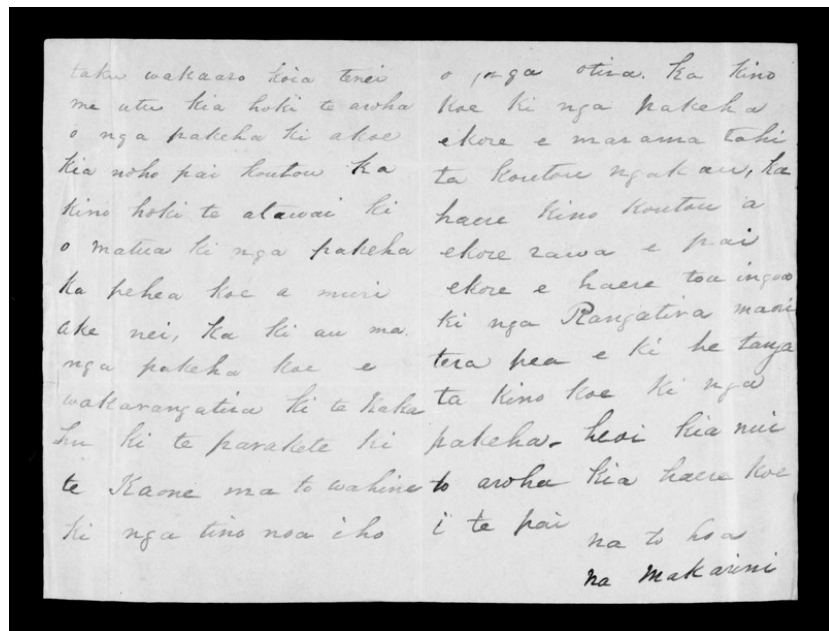 taku wakaaro koia tenei
me utu kia hoki te aroha
o nga pakeha ki akoe
kia noho pai koutou ka
kino hoki te atawai ki
o matua ki nga pakeha
ka pehea koe a muri
ake nei, ka ki au ma
nga pakeha koe e
wakarangatira ki te kaka
hu ki te parakete ki
te Kaone ma to wahine
ki nga tino noa iho
o nga otira. ka kino
koe ki nga pakeha
ekore e marama tahi
ta koutou ngakau, ka
haere kino koutou a
ekore rawa e pai
ekore e haere tou ingoa
ki nga Rangatira maori
tera pea e ki he tanga
ta kino koe ki nga
pakeha- heoi kia nui
to aroha kia haere koe
i te pai
na to hoa
na Makarini